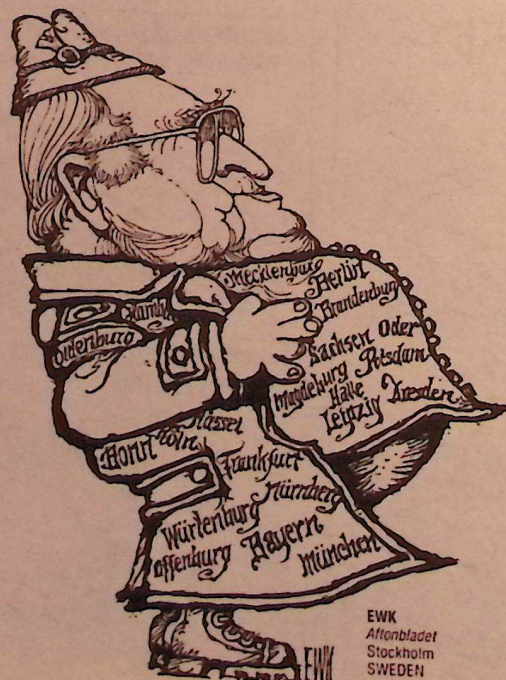 Mecklenburg
Berlin
Brandenburg
Hamb
Oldenburg
Sachsen Oder
Magdeburg Potsdam
Halle
Leipzig Dresden
Kassel
Bonn Köln
Frankfurt
Nürnberg
Würtenburg
Offenburg Bayern
München
EWK
EWK
Aftonbladet
Stockholm
SWEDEN